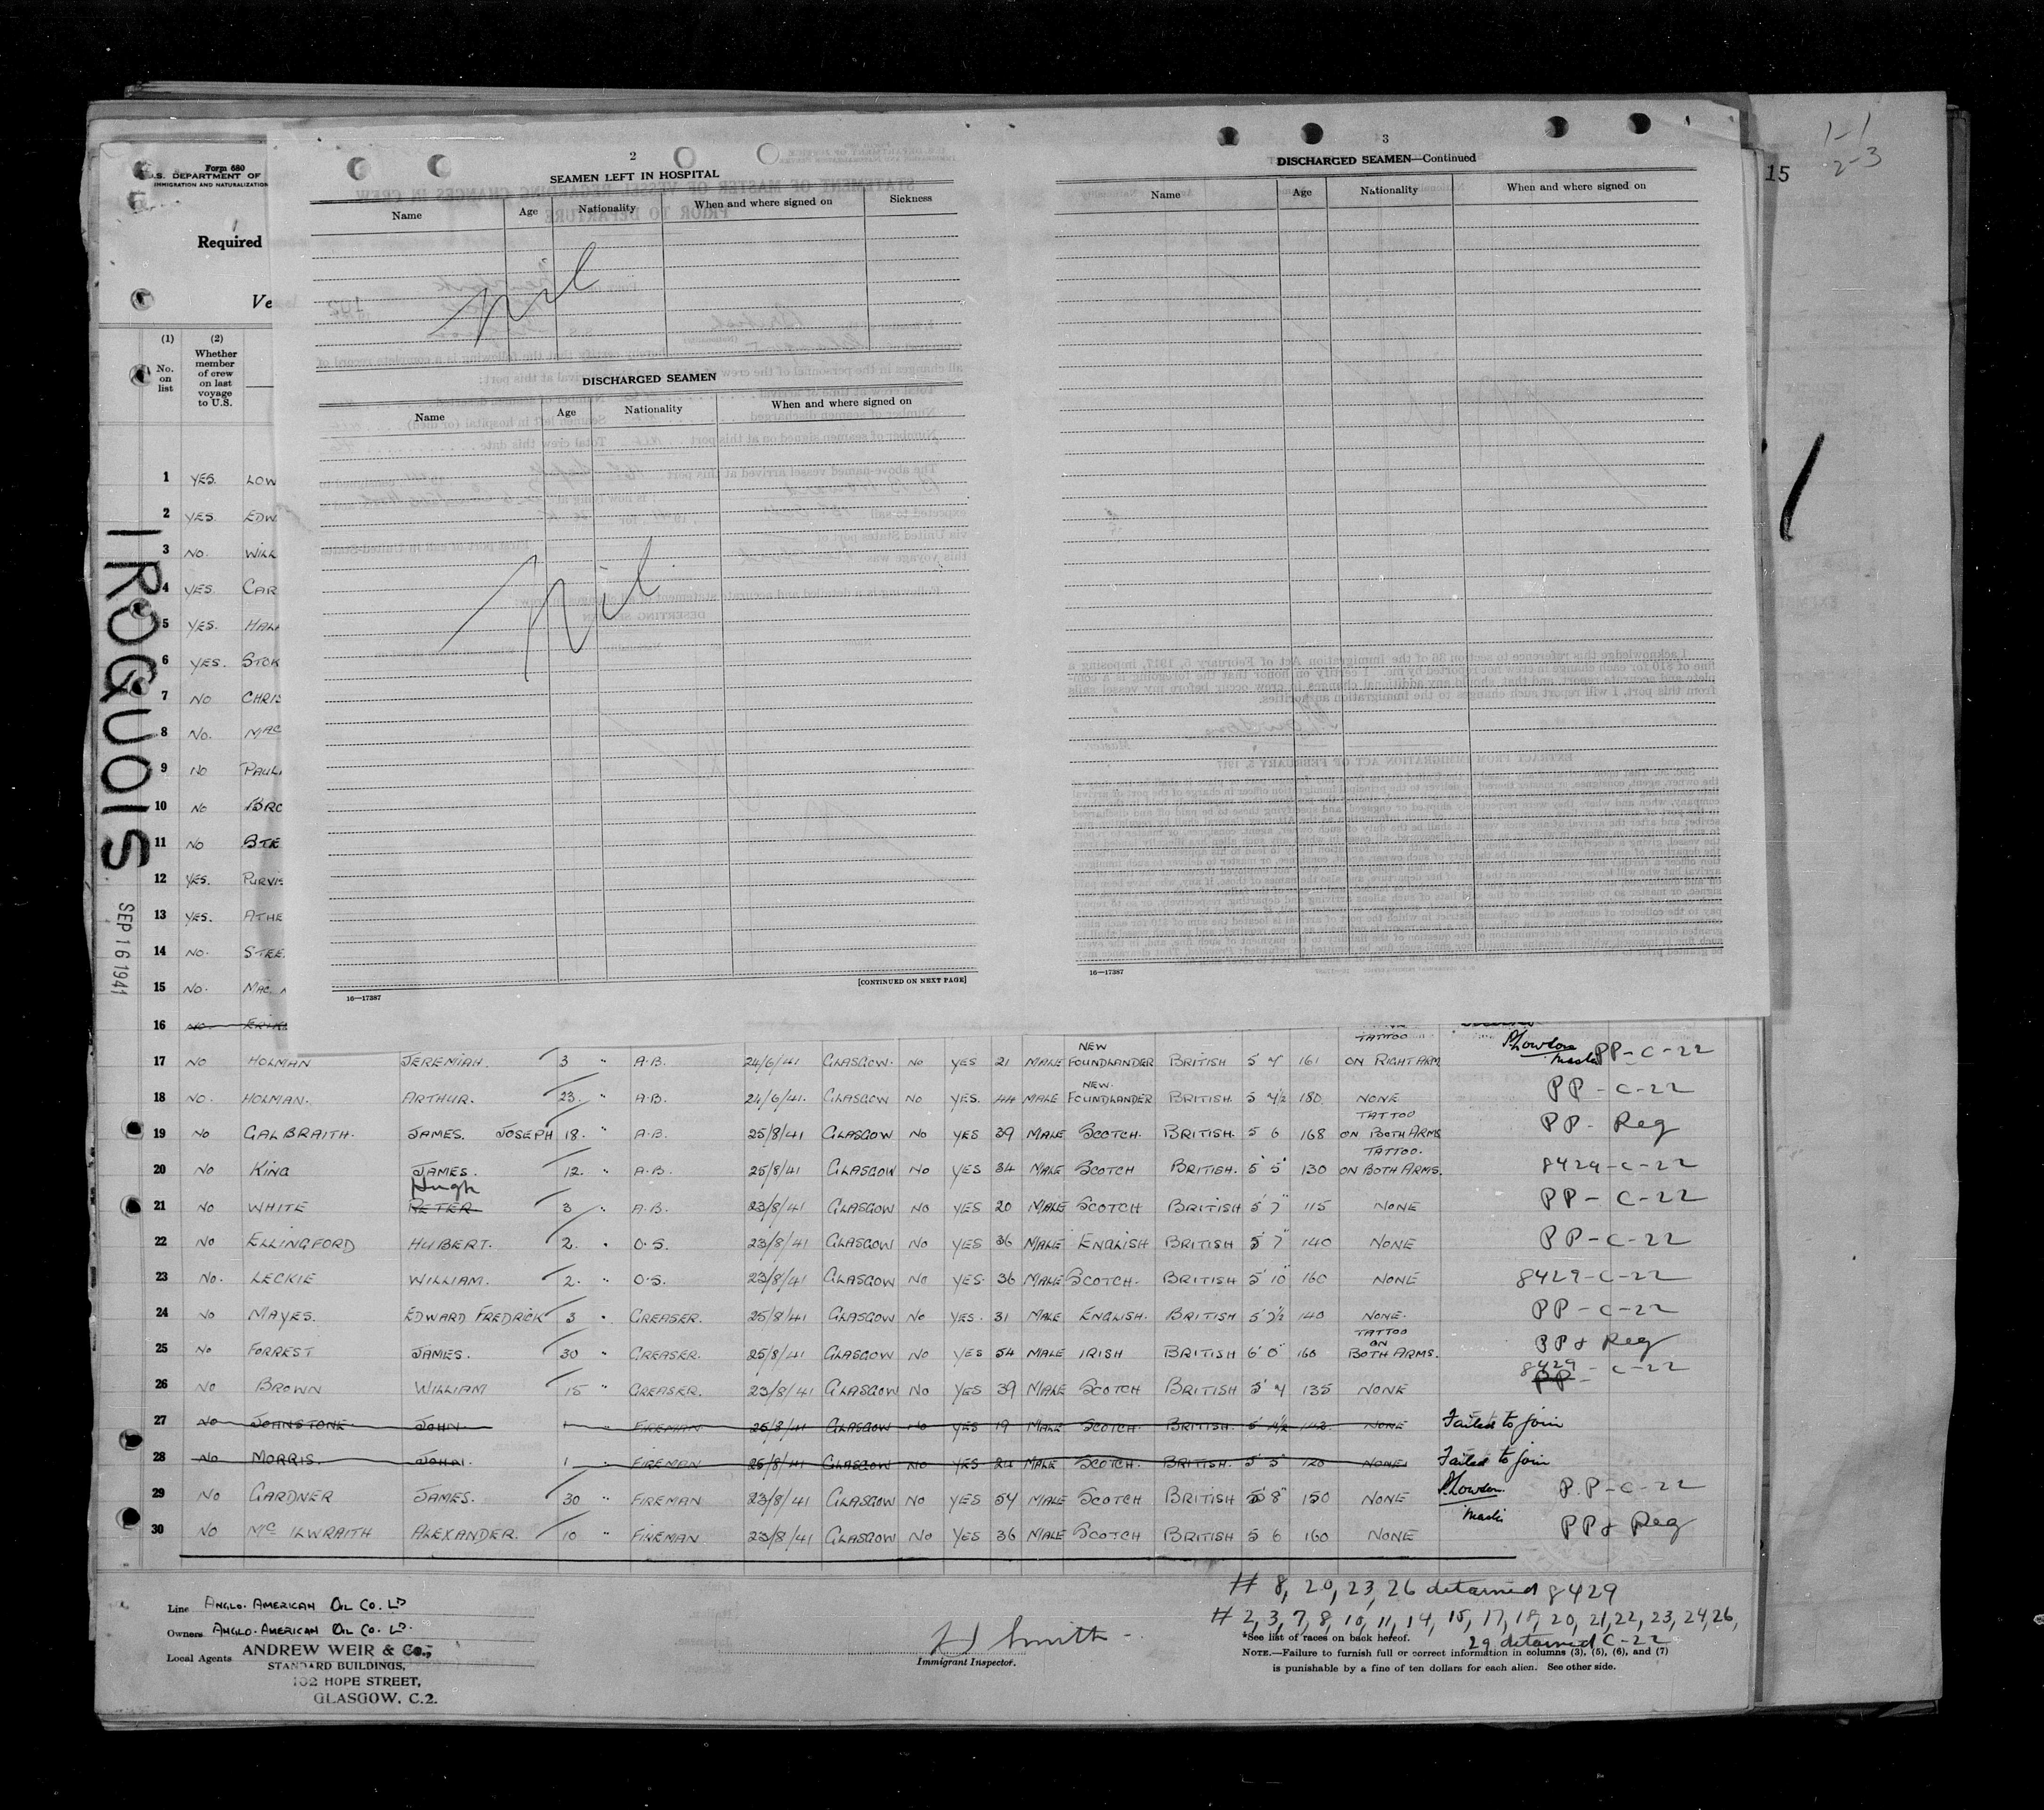 Form 680
U.S. DEPARTMENT OF
IMMIGRATION AND NATURALIZATION
Required
Ve
(1) (2)
No. on list
Whether member of crew on last voyage to U.S.
IROQUOIS
SEP 16 1941
1 YES. LOW
2 YES. EDW
3 NO. WILL
4 YES. CAR
5 YES. HAL
6 YES. STOK
7 NO CHRIS
8 NO. MAC
9 NO PAUL
10 NO BRO
11 NO STE
12 YES. PURVIS
13 YES. ATHE
14 NO. STEE
15 NO. MAC.
16 NO.
2
SEAMEN LEFT IN HOSPITAL
Name Age Nationality When and where signed on Sickness
Nil
DISCHARGED SEAMEN
Name Age Nationality When and where signed on
Nil
16—17387
[CONTINUED ON NEXT PAGE]
3
DISCHARGED SEAMEN—Continued
Name Age Nationality When and where signed on
16—17387
15
1-1
2-3
17 NO HOLMAN JEREMIAH. 3 " A.B. 24/6/41 GLASGOW. NO YES 21 MALE NEW FOUNDLANDER BRITISH 5 4 161 TATTOO ON RIGHT ARM PP-C-22
18 NO. HOLMAN. ARTHUR. 23. " A.B. 24/6/41. GLASGOW NO YES. 44 MALE NEW. FOUNDLANDER BRITISH. 5 4½ 180 NONE PP-C-22
19 NO GALBRAITH. JAMES. JOSEPH 18. " A.B. 25/8/41 GLASGOW NO YES 39 MALE SCOTCH. BRITISH. 5 6 168 TATTOO ON BOTH ARMS PP- Reg
20 NO KING JAMES. 12. " A.B. 25/8/41 GLASGOW NO YES 34 MALE SCOTCH BRITISH. 5 5 130 TATTOO. ON BOTH ARMS. 8429-C-22
21 NO WHITE Hugh PETER 3 " A.B. 23/8/41 GLASGOW NO YES 20 MALE SCOTCH BRITISH 5 7 115 NONE PP-C-22
22 NO ELLINGFORD HUBERT. 2. " O.S. 23/8/41 GLASGOW NO YES 36 MALE ENGLISH BRITISH 5 7 140 NONE PP-C-22
23 NO. LECKIE WILLIAM. 2. " O.S. 23/8/41 GLASGOW NO YES. 36 MALE SCOTCH. BRITISH 5 10 160 NONE 8429-C-22
24 NO MAYES. EDWARD FREDRICK 3 " GREASER. 25/8/41 GLASGOW NO YES. 31 MALE ENGLISH. BRITISH 5 7½ 140 NONE. PP-C-22
25 NO FORREST JAMES. 30 " GREASER. 25/8/41 GLASGOW NO YES 54 MALE IRISH BRITISH 6 0 160 TATTOO ON BOTH ARMS. PP & Reg
26 NO BROWN WILLIAM 15 " GREASER. 23/8/41 GLASGOW NO YES 39 MALE SCOTCH BRITISH 5 4 135 NONE 8429 PP-C-22
27 NO JOHNSTONE JOHN 1 " FIREMAN 25/8/41 GLASGOW NO YES 19 MALE SCOTCH. BRITISH. 5 4½ 142 NONE Failed to join
28 NO MORRIS. JOHN. 1 " FIREMAN 25/8/41 GLASGOW NO YES 24 MALE SCOTCH. BRITISH. 5 5 120 NONE. Failed to join
29 NO GARDNER JAMES. 30 " FIREMAN 23/8/41 GLASGOW NO YES 54 MALE SCOTCH BRITISH 5 8 150 NONE P.P-C-22
30 NO Mc ILWRAITH ALEXANDER. 10 " FIREMAN. 23/8/41 GLASGOW NO YES 36 MALE SCOTCH BRITISH 5 6 160 NONE PP & Reg
Line ANGLO-AMERICAN OIL CO. LD
Owners ANGLO-AMERICAN OIL CO. LD.
Local Agents ANDREW WEIR & Co.,
STANDARD BUILDINGS,
102 HOPE STREET,
GLASGOW, C.2.
Smith
Immigrant Inspector.
# 8, 20, 23, 26 detained 8429
# 2, 3, 7, 8, 10, 11, 14, 15, 17, 18, 20, 21, 22, 23, 24, 26,
29 detained C-22
*See list of races on back hereof.
NOTE.—Failure to furnish full or correct information in columns (3), (5), (6), and (7)
is punishable by a fine of ten dollars for each alien. See other side.